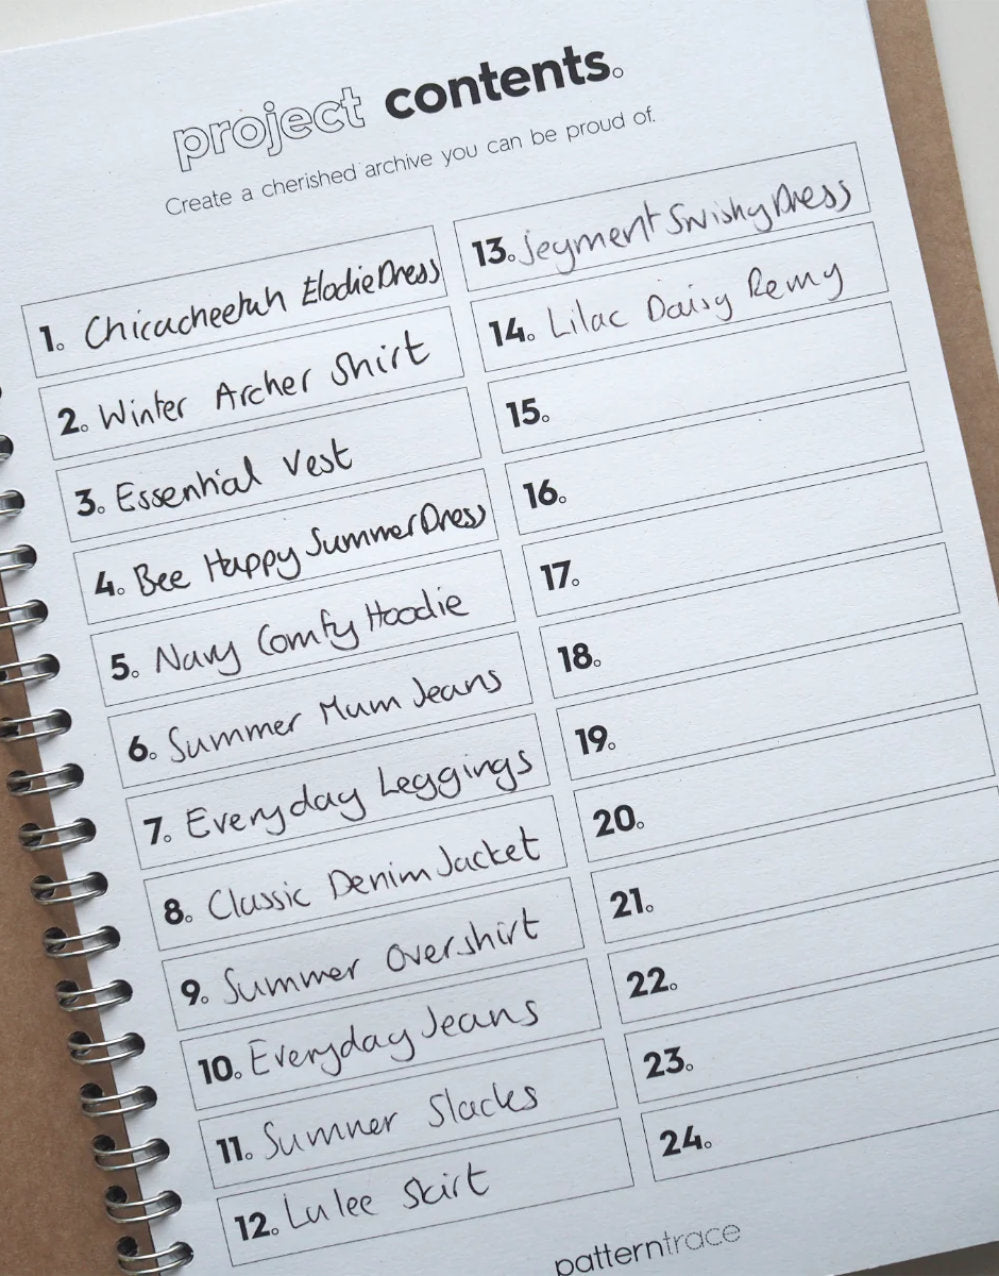 project contents.
Create a cherished archive you can be proud of.
1. Chicacheetuh Elodie Dress
2. Winter Archer Shirt
3. Essential Vest
4. Bee Happy Summer Dress
5. Navy Comfy Hoodie
6. Summer Mum Jeans
7. Everyday Leggings
8. Classic Denim Jacket
9. Summer Overshirt
10. Everyday Jeans
11. Summer Slacks
12. Lulee Skirt
13. Jeyment Swishy Dress
14. Lilac Daisy Remy
15.
16.
17.
18.
19.
20.
21.
22.
23.
24.
patterntrace